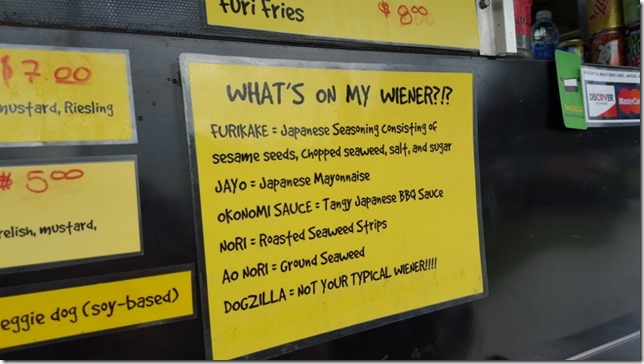 Furi Fries
$ 8.00
$7.00
mustard, Riesling
$ 5.00
relish, mustard,
eggie dog (soy-based)
WHAT'S ON MY WIENER?!?
FURIKAKE = Japanese Seasoning consisting of
sesame seeds, chopped seaweed, salt, and sugar
JAYO = Japanese Mayonnaise
OKONOMI SAUCE = Tangy Japanese BBQ Sauce
NORI = Roasted Seaweed Strips
AO NORI = Ground Seaweed
DOGZILLA = NOT YOUR TYPICAL WIENER!!!!
DISCOVER
MasterCar